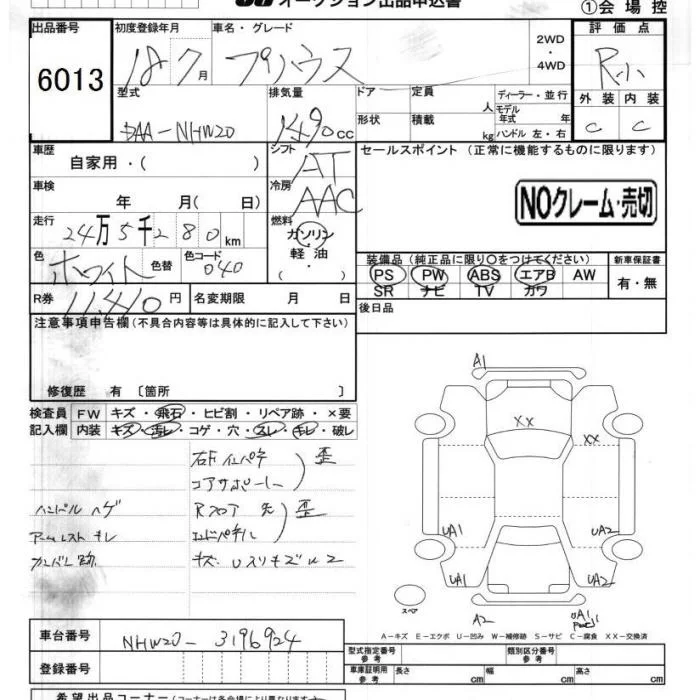 オークション出品申込書
①会場控
出品番号 初度登録年月 車名・グレード 2WD・4WD 評価点
6013 18 7月 プリウス R小
型式 排気量 ドア 定員 人 ディーラー・並行 外装 内装
DAA-NHW20 1490cc 形状 積載 kg モデル年式 年 ハンドル 左・右 C C
車歴 自家用・( ) シフト AT セールスポイント (正常に機能するものに限ります)
車検 年 月( 日) 冷房 AAC
NOクレーム・売切
走行 24万5千280km 燃料 ガソリン・軽油・
色 ホワイト 色替 色コード 040 装備品 (純正品に限り○をつけてください) 新車保証書
PS PW ABS エアB AW 有・無
SR ナビ TV カワ
R券 11,410円 名変期限 月 日 後日品
注意事項申告欄(不具合内容等は具体的に記入して下さい)
修復歴 有 〔箇所 〕
検査員 FW キズ・飛石・ヒビ割・リペア跡・×要
記入欄 内装 キズ・汚レ・コゲ・穴・スレ・キレ・破レ
A1
XX
XX
右F インパネ
コアサポート 歪
ハンドル ハゲ Rフロア 先
アームレスト キレ エンドパネル 歪
カンバン跡
UA1 UA2
UA1 UA2
スペア
A2 UA1
A-キズ E-エクボ U-凹み W-補修跡 S-サビ C-腐食 XX-交換済
車台番号 NHW20-3196924 型式指定番号 参考 類別区分番号 参考
登録番号 車庫証明用 参考 長さ cm 幅 cm 高さ cm
希望出品コーナー